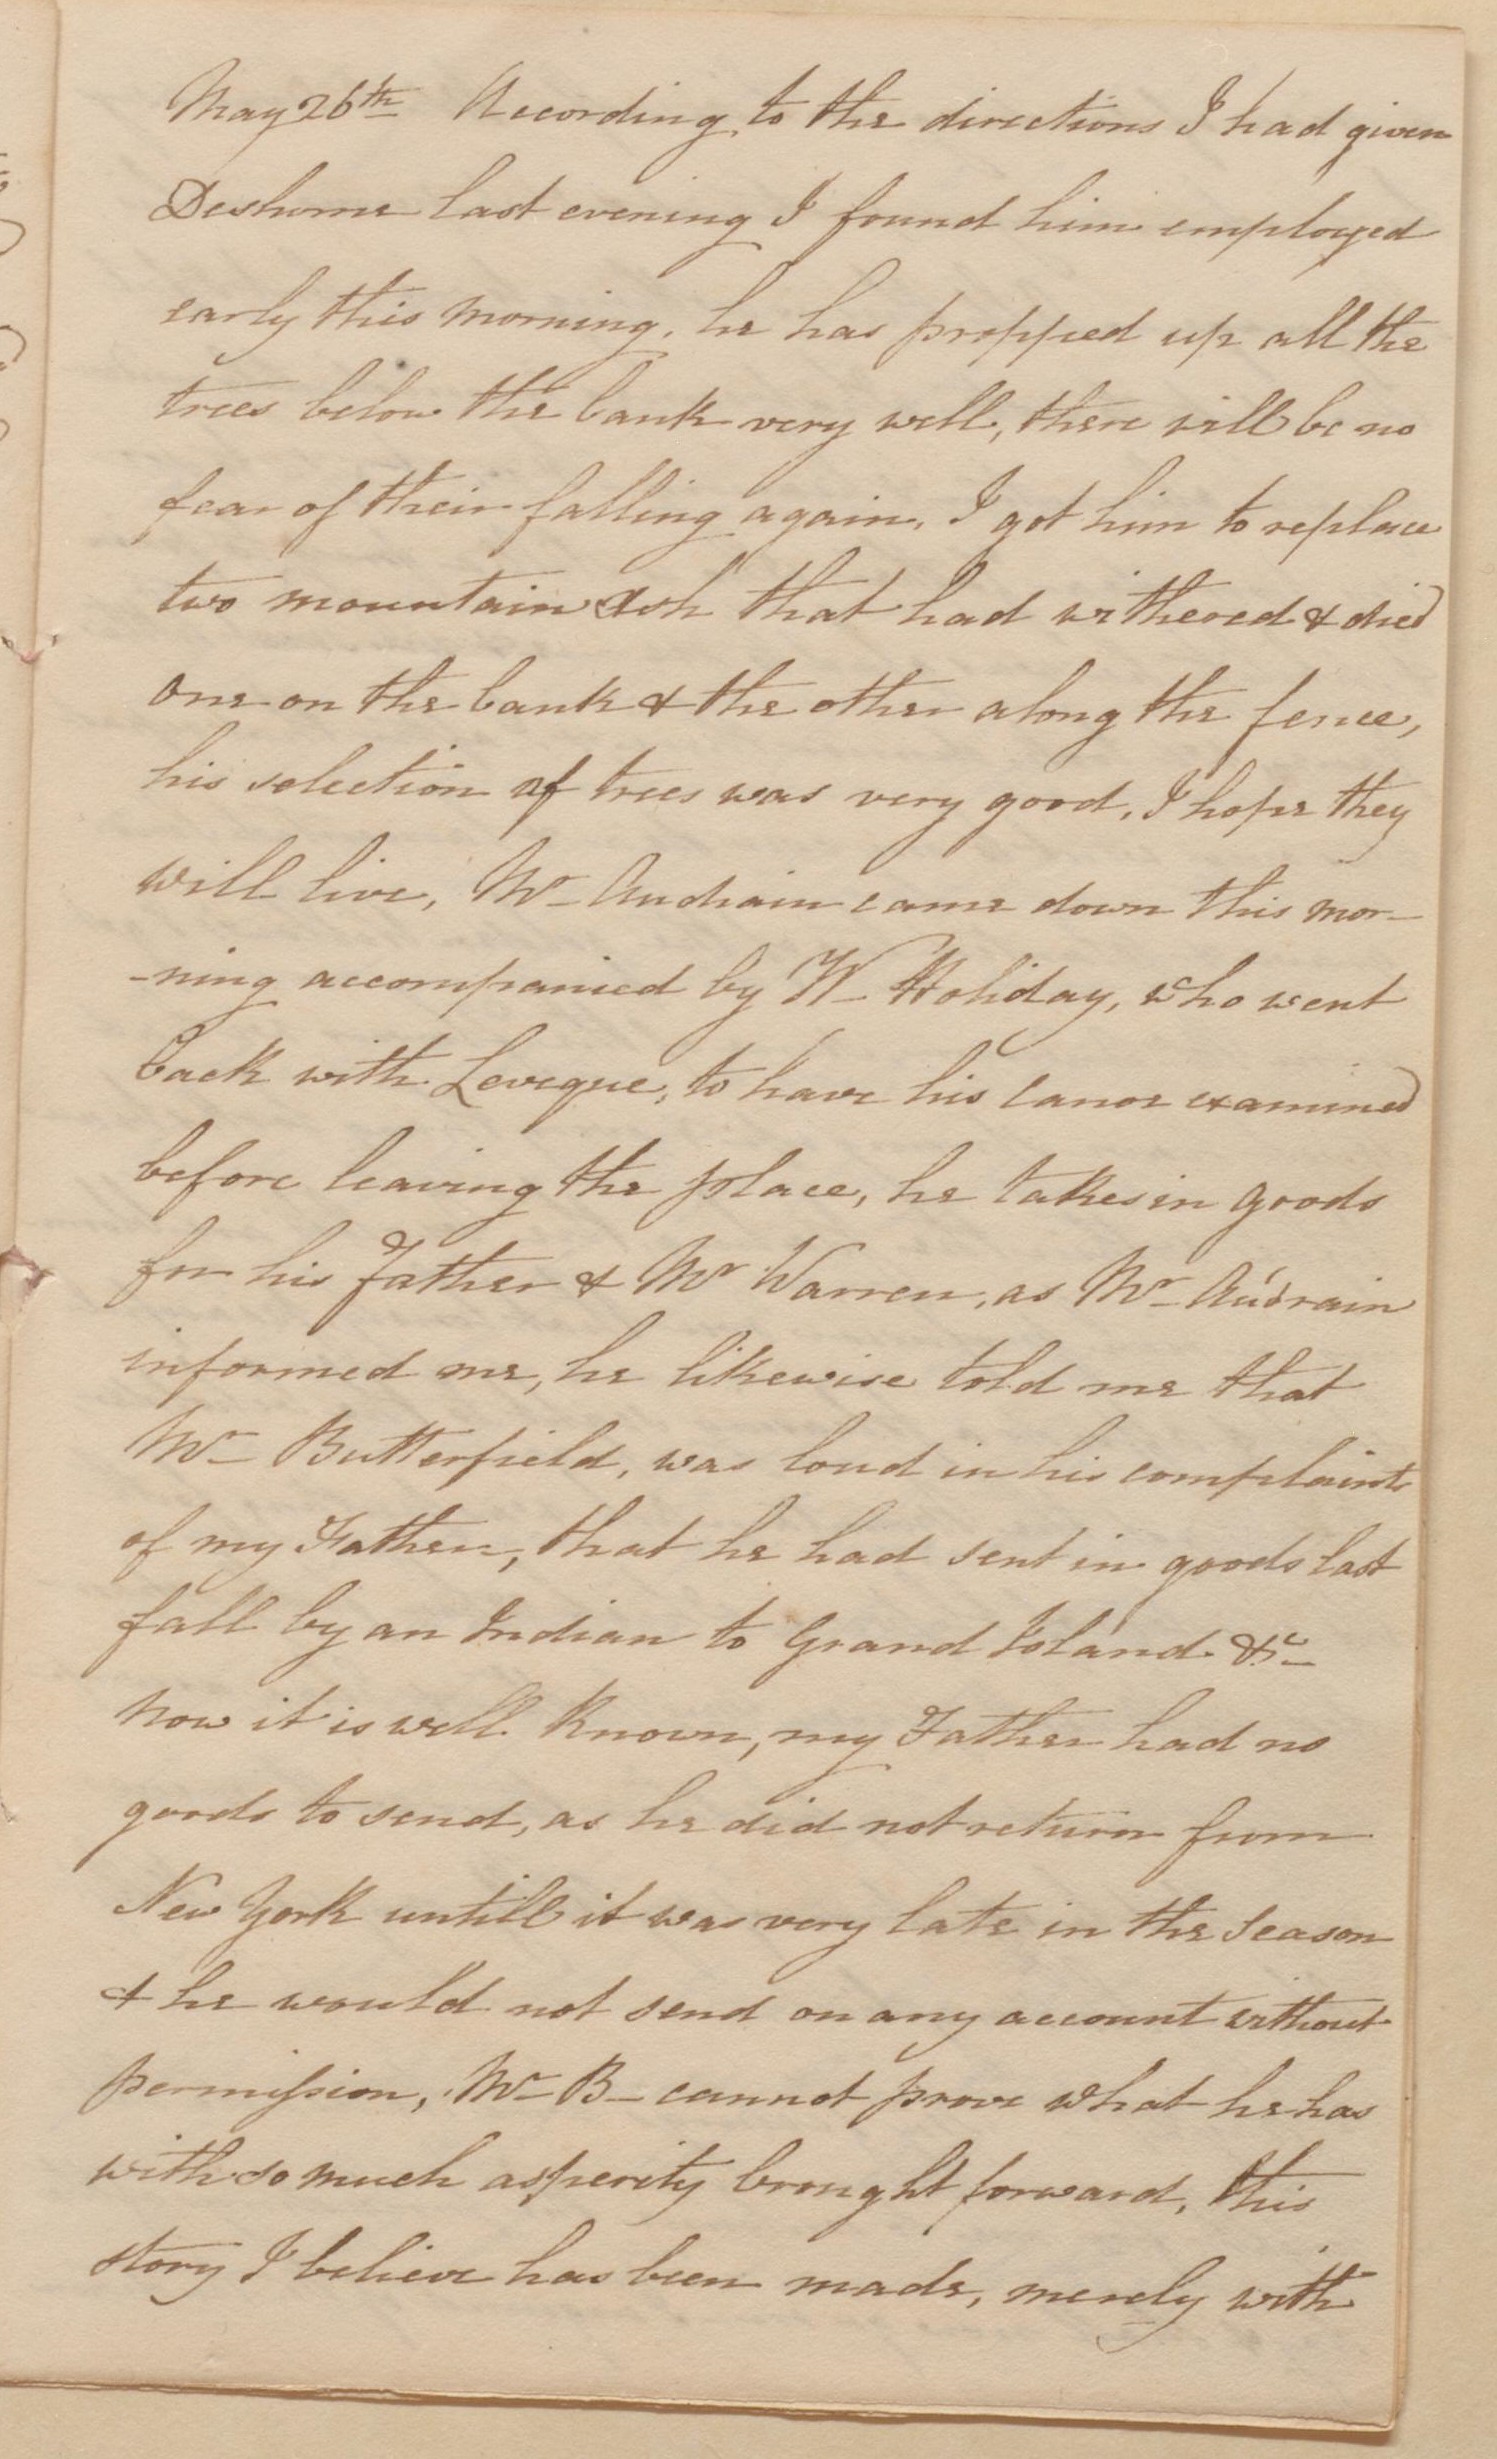 May 26th According to the directions I had given
Deshome last evening I found him employed
early this morning, he has propped up all the
trees below the bank very well, there will be no
fear of their falling again, I got him to replace
two mountain Ash that had withered & died
one on the bank & the other along the fence,
his selection of trees was very good, I hope they
will live, Mr Audrain came down this mor-
-ning accompanied by W Holiday, who went
back with Leveque, to have his canoe examined
before leaving the place, he takes in goods
for his Father & Mr Warren, as Mr Audrain
informed me, he likewise told me that
Mr Butterfield, was loud in his complaints
of my Father, that he had sent in goods last
fall by an Indian to Grand Island &c
now it is well known, my Father had no
goods to send, as he did not return from
New York untill it was very late in the Season
& he would not send on any account without
permission, Mr B- cannot prove what he has
with so much asperity brought forward, this
story I believe has been made, merely with